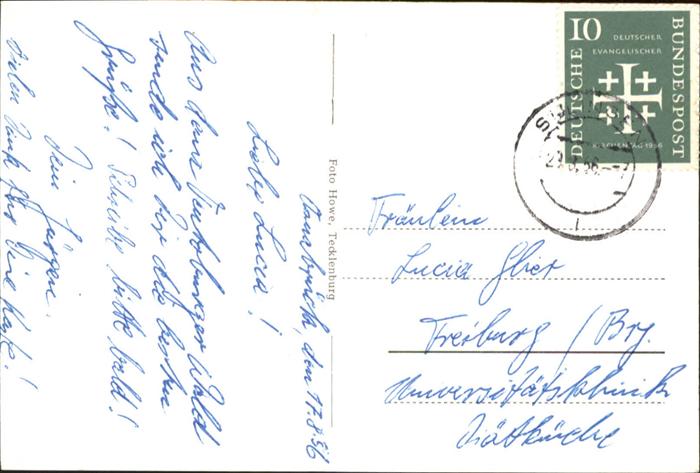 Osnabrück, den 17.8.56
Liebe Lucia!
Aus dem Teutoburger Wald
sende ich Dir die besten
Grüße! Schreibe bitte bald!
Dein Jürgen.
Vielen Dank für Deine Karte!
Foto Howe, Tecklenburg
10
DEUTSCHER
EVANGELISCHER
KIRCHENTAG 1956
DEUTSCHE
BUNDESPOST
Fräulein
Lucia
Freiburg / Brg.
Universitätsklinik
Diätküche